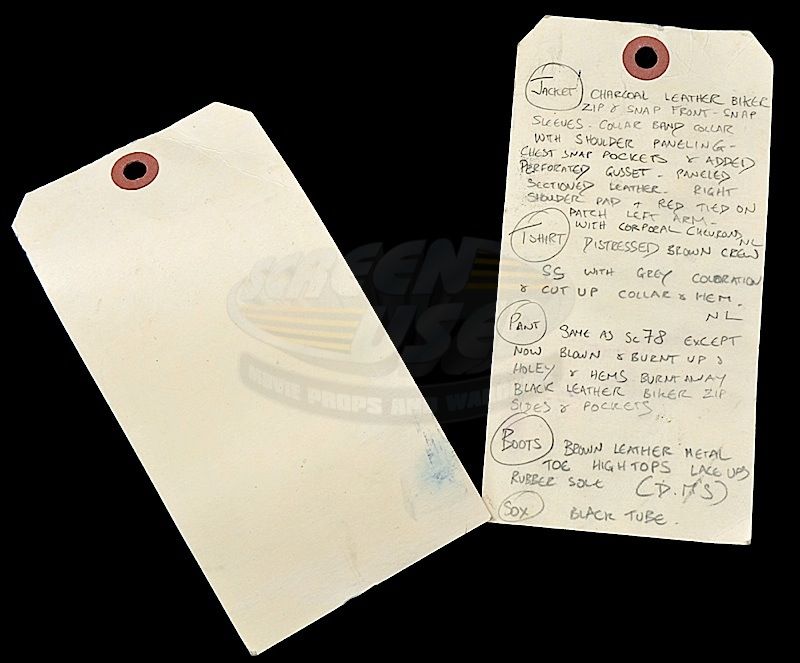 JACKET CHARCOAL LEATHER BIKER
ZIP & SNAP FRONT - SNAP
SLEEVES - COLLAR BAND COLLAR
WITH SHOULDER PANELING -
CHEST SNAP POCKETS & ADDED
PERFORATED GUSSET - PANELED
SECTIONED LEATHER - RIGHT
SHOULDER PAD + RED TIED ON
PATCH LEFT ARM -
WITH CORPORAL CHEVRONS NL
T SHIRT DISTRESSED BROWN CREW
SS WITH GREY COLORATION
& CUT UP COLLAR & HEM -
NL
PANT SAME AS SC78 EXCEPT
NOW BLOWN & BURNT UP &
HOLEY & HEMS BURNT AWAY
BLACK LEATHER BIKER ZIP
SIDES & POCKETS
BOOTS BROWN LEATHER METAL
TOE HIGH TOPS LACE UPS
RUBBER SOLE (D.M'S)
SOX BLACK TUBE.
SCREEN
USED
MOVIE PROPS AND